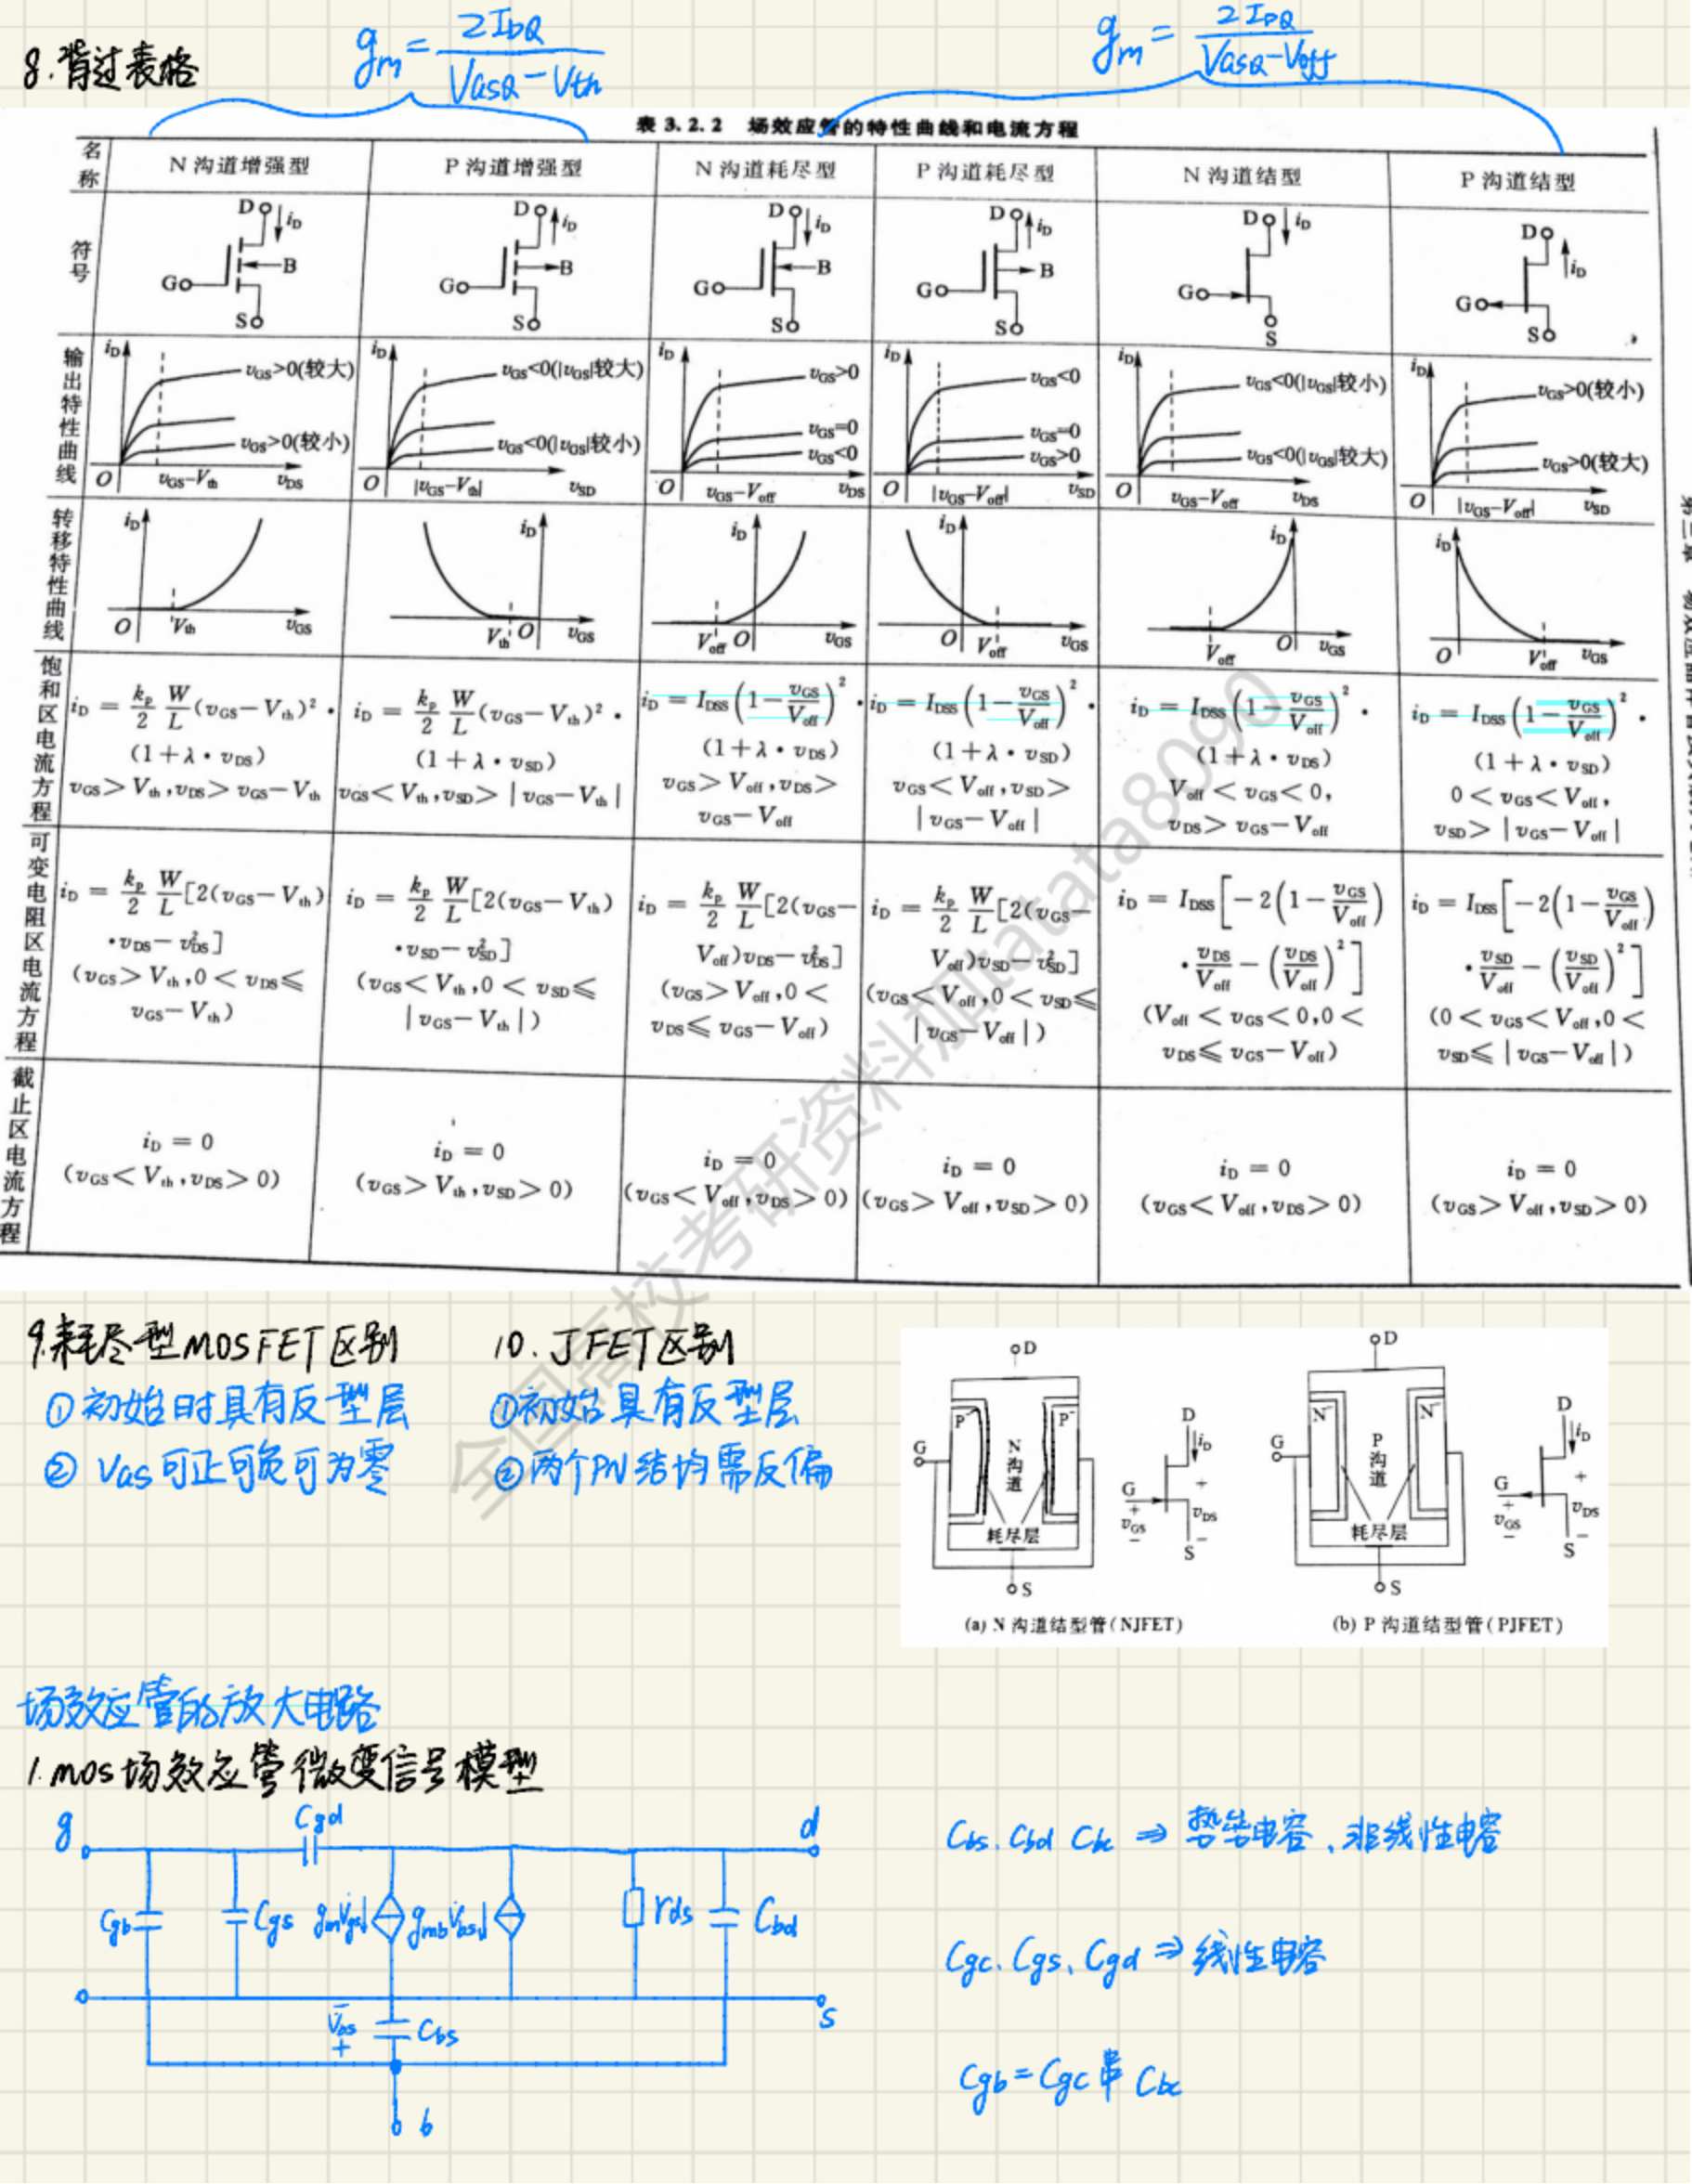 8.背过表格
gm = 2IDQ / (VGSQ − Vth)
gm = 2IDQ / (VGSQ − Voff)
表 3.2.2 场效应管的特性曲线和电流方程
名称 N 沟道增强型 P 沟道增强型 N 沟道耗尽型 P 沟道耗尽型 N 沟道结型 P 沟道结型
符号
D iD G B S
D iD G B S
D iD G B S
D iD G B S
D iD G S
D iD G S
输出特性曲线
iD vGS>0(较大) vGS>0(较小) O vGS−Vth vDS
iD vGS<0(|vGS|较大) vGS<0(|vGS|较小) O |vGS−Vth| vSD
iD vGS>0 vGS=0 vGS<0 O vGS−Voff vDS
iD vGS<0 vGS=0 vGS>0 O |vGS−Voff| vSD
iD vGS<0(|vGS|较小) vGS<0(|vGS|较大) O vGS−Voff vDS
iD vGS>0(较小) vGS>0(较大) O |vGS−Voff| vSD
转移特性曲线
iD O Vth vGS
iD Vth O vGS
iD Voff O vGS
iD O Voff vGS
iD Voff O vGS
iD O Voff vGS
饱和区电流方程
iD = kp/2 W/L (vGS−Vth)² ·
(1+λ·vDS)
vGS>Vth,vDS>vGS−Vth
iD = kp/2 W/L (vGS−Vth)² ·
(1+λ·vSD)
vGS<Vth,vSD>|vGS−Vth|
iD = IDSS(1−vGS/Voff)² ·
(1+λ·vDS)
vGS>Voff,vDS>
vGS−Voff
iD = IDSS(1−vGS/Voff)² ·
(1+λ·vSD)
vGS<Voff,vSD>
|vGS−Voff|
iD = IDSS(1−vGS/Voff)² ·
(1+λ·vDS)
Voff<vGS<0,
vDS>vGS−Voff
iD = IDSS(1−vGS/Voff)² ·
(1+λ·vSD)
0<vGS<Voff,
vSD>|vGS−Voff|
可变电阻区电流方程
iD = kp/2 W/L [2(vGS−Vth)
·vDS−v²DS]
(vGS>Vth,0<vDS≤
vGS−Vth)
iD = kp/2 W/L [2(vGS−Vth)
·vSD−v²SD]
(vGS<Vth,0<vSD≤
|vGS−Vth|)
iD = kp/2 W/L [2(vGS−
Voff)vDS−v²DS]
(vGS>Voff,0<
vDS≤vGS−Voff)
iD = kp/2 W/L [2(vGS−
Voff)vSD−v²SD]
(vGS<Voff,0<vSD≤
|vGS−Voff|)
iD = IDSS[−2(1−vGS/Voff)
·vDS/Voff−(vDS/Voff)²]
(Voff<vGS<0,0<
vDS≤vGS−Voff)
iD = IDSS[−2(1−vGS/Voff)
·vSD/Voff−(vSD/Voff)²]
(0<vGS<Voff,0<
vSD≤|vGS−Voff|)
截止区电流方程
iD = 0
(vGS<Vth,vDS>0)
iD = 0
(vGS>Vth,vSD>0)
iD = 0
(vGS<Voff,vDS>0)
iD = 0
(vGS>Voff,vSD>0)
iD = 0
(vGS<Voff,vDS>0)
iD = 0
(vGS>Voff,vSD>0)
全国高校考研资料加tata8090
9.耗尽型MOSFET区别
①初始时具有反型层
②VGS可正可负可为零
10.JFET区别
①初始具有反型层
②两个PN结均需反偏
D
P N沟道 P
G
耗尽层
S
D iD G + vGS − + vDS − S
(a) N 沟道结型管(NJFET)
D
N P沟道 N
G
耗尽层
S
D iD G + vGS − + vDS − S
(b) P 沟道结型管(PJFET)
场效应管的放大电路
1.MOS场效应管微变信号模型
g Cgd d
Cgb Cgs gmVgs gmbVbs rds Cbd
Vbs − + Cbs s
b
Cbs、Cbd Cbc ⇒ 势垒电容、非线性电容
Cgc、Cgs、Cgd ⇒ 线性电容
Cgb=Cgc串Cbc